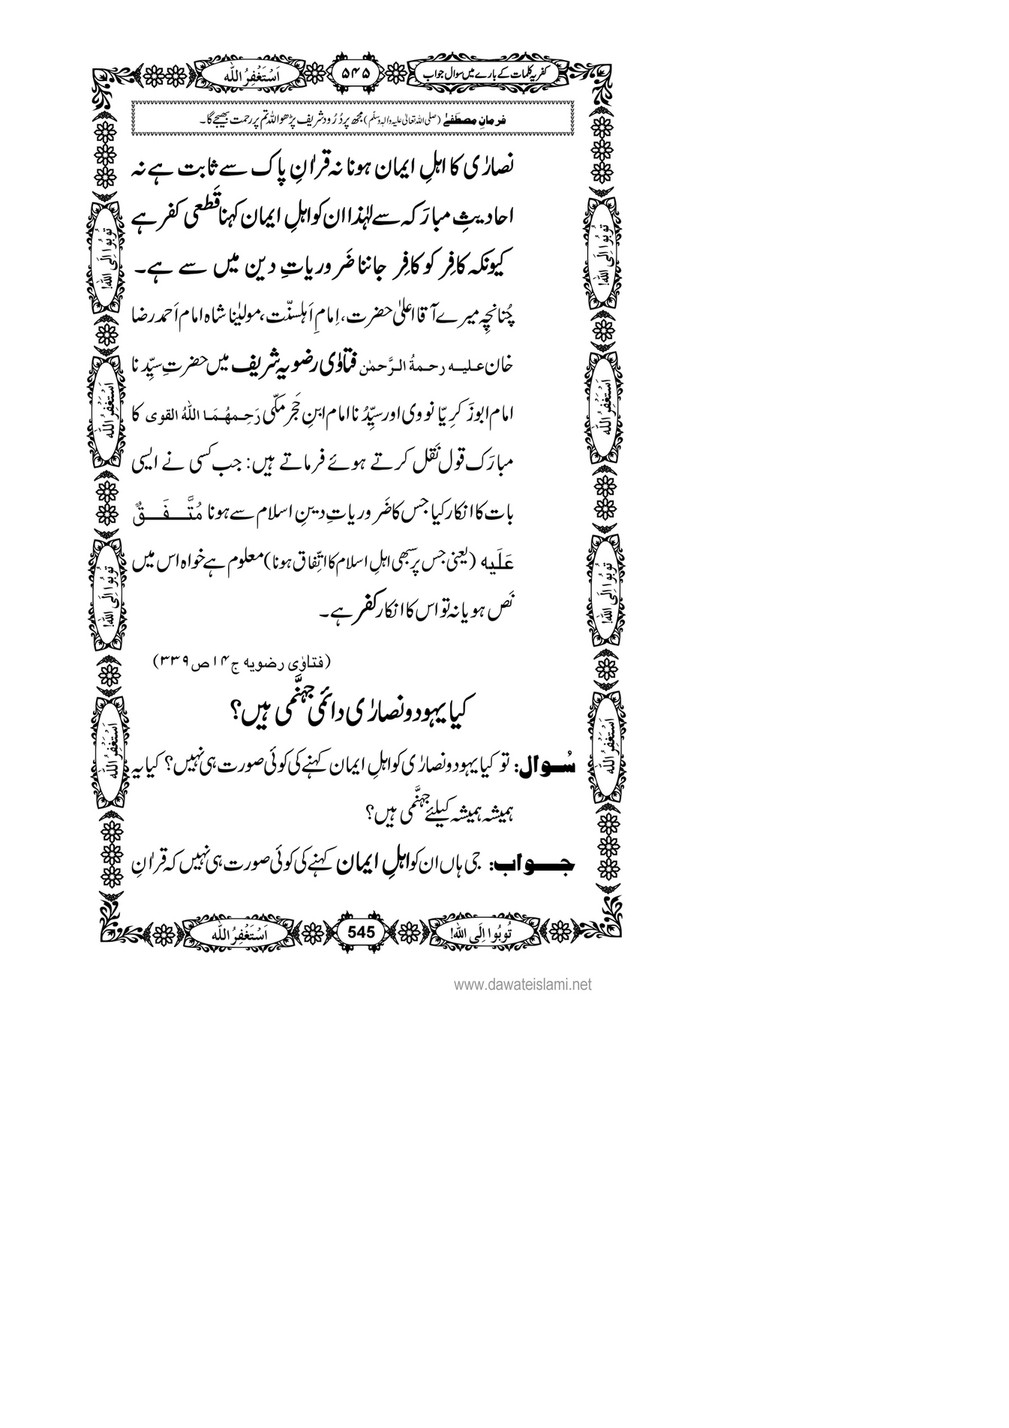 کفریہ کلمات کے بارے میں سوال جواب
۵۴۵
اَسْتَغْفِرُ اللہ
فرمانِ مصطَفےٰ (صلی اللہ تعالیٰ علیہ والہٖ وسلّم) مجھ پر دُرُود شریف پڑھو اللہ تم پر رحمت بھیجے گا۔
نصارٰی کا اہلِ ایمان ہونا نہ قراٰنِ پاک سے ثابت ہے نہ
احادیثِ مبارَکہ سے لہٰذا ان کو اہلِ ایمان کہنا قَطعی کفر ہے
کیونکہ کافِر کو کافِر جاننا ضَروریاتِ دین میں سے ہے۔
چُنانچِہ میرے آقا اعلیٰ حضرت، اِمامِ اَہلسنّت، مولیٰنا شاہ امام اَحمد رضا
خان علیہ رحمۃُ الرَّحمٰن فتاوٰی رضویہ شریف میں حضرتِ سیِّدنا
امام ابو زَکرِیّا نووی اور سیِّدُنا امام ابنِ حَجَر مکّی رَحِمَہُمَا اللہُ القوی کا
مبارَک قول نَقل کرتے ہوئے فرماتے ہیں: جب کسی نے ایسی
بات کا انکار کیا جس کا ضَروریاتِ دینِ اسلام سے ہونا مُتَّفَقٌ
عَلَیہ (یعنی جس پر سبھی اہلِ اسلام کا اتِّفاق ہونا) معلوم ہے خواہ اس میں
نَص ہو یا نہ تو اس کا انکار کفر ہے۔
(فتاوٰی رضویہ ج۱۴ص۳۳۹)
کیا یہود و نصارٰی دائمی جہنَّمی ہیں؟
سُوال: تو کیا یہود و نصارٰی کو اہلِ ایمان کہنے کی کوئی صورت ہی نہیں؟ کیا یہ
ہمیشہ ہمیشہ کیلئے جہنَّمی ہیں؟
جواب: جی ہاں ان کو اہلِ ایمان کہنے کی کوئی صورت ہی نہیں کہ قراٰنِ
تُوبُوا اِلَی اللہ!
اَسْتَغْفِرُ اللہ
تُوبُوا اِلَی اللہ!
اَسْتَغْفِرُ اللہ
تُوبُوا اِلَی اللہ!
اَسْتَغْفِرُ اللہ
تُوبُوا اِلَی اللہ!
اَسْتَغْفِرُ اللہ
تُوبُوا اِلَی اللہ!
545
اَسْتَغْفِرُ اللہ
www.dawateislami.net